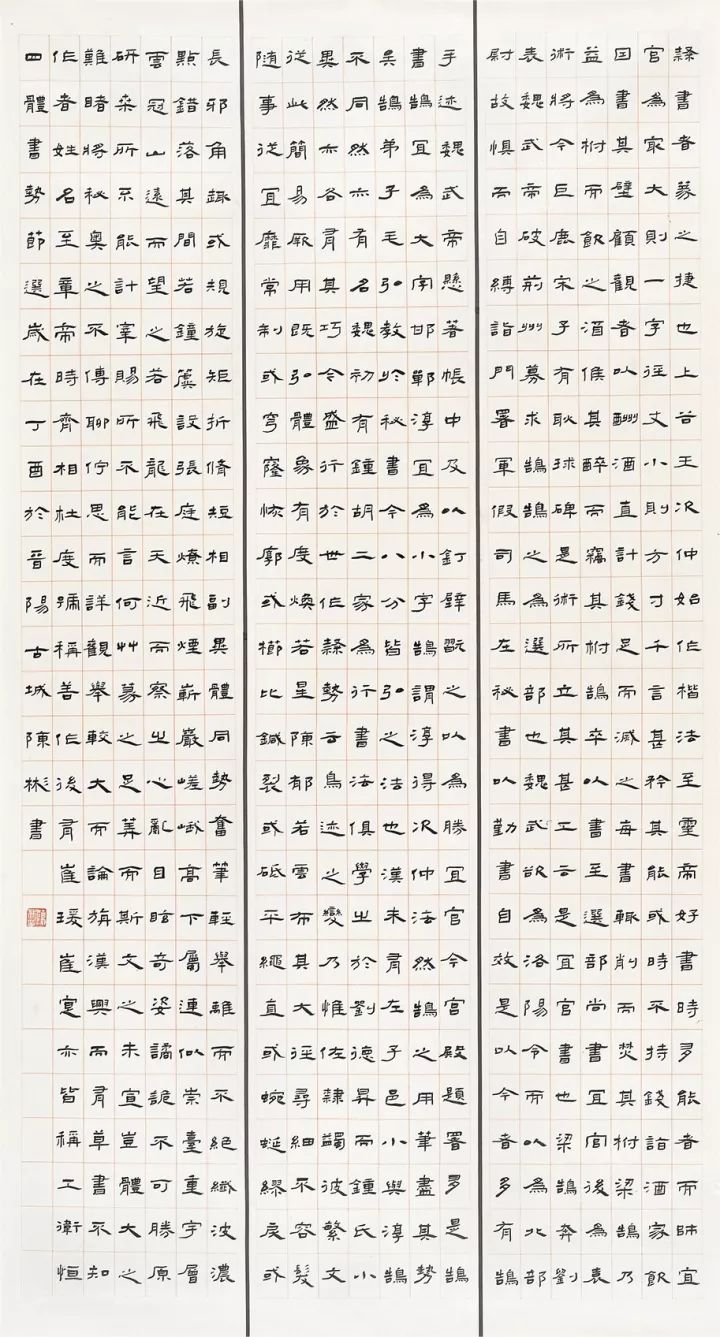 隸書者篆之捷也上谷王次仲始作楷法至靈帝好書時多能者而師宜
官為冣大則一字徑丈小則方寸千言甚矜其能或時不持錢詣酒家飲
因書其壁顧觀者以酬酒直計錢足而滅之每書輒削而焚其柎梁鵠乃
益為柎而飲之酒候其醉而竊其柎鵠卒以書至選部尚書宜官後為袁
術將今巨鹿宋子有耿球碑是術所立其甚工云是宜官書也梁鵠奔劉
表魏武帝破荊州募求鵠鵠之為選部也魏武欲為洛陽令而以為北部
尉故懼而自縛詣門署軍假司馬在秘書以勤書自效是以今者多有鵠
手迹魏武帝懸著帳中及以釘壁翫之以為勝宜官今宮殿題署多是鵠
書鵠宜為大字邯鄲淳宜為小字鵠謂淳得次仲法然鵠之用筆盡其勢
吳鵠弟子毛弘教於秘書今八分皆弘之法也漢末有左子邑小與淳鵠
不同然亦有名魏初有鍾胡二家為行書法俱學之於劉德昇而鍾氏小
異然亦各有其巧今盛行於世作隸勢云鳥迹之變乃惟佐隸蠲彼繁文
從此簡易厥用既弘體象有度煥若星陳郁若雲布其大徑尋細不容髮
随事從宜靡常制或穹隆恢廓或櫛比鍼裂或砥平繩直或蜿蜒繆戾或
長邪角趣或規旋矩折脩短相副異體同勢奮筆輕舉離而不絕纖波濃
點錯落其間若鐘簴設張庭燎飛煙嶄巖嵯峨高下屬連似崇臺重宇層
雲冠山遠而望之若飛龍在天近而察之心亂目眩奇姿譎詭不可勝原
研桑所不能計宰賜所不能言何艸篆之足筭而斯文之未宣豈體大之
難睹將秘奧之不傳聊佇思而詳觀舉較大而論旃漢興而有草書不知
作者姓名至章帝時齊相杜度號稱善作後有崔瑗崔寔亦皆稱工衛恒
四體書勢節選歲在丁酉於晉陽古城陳彬書